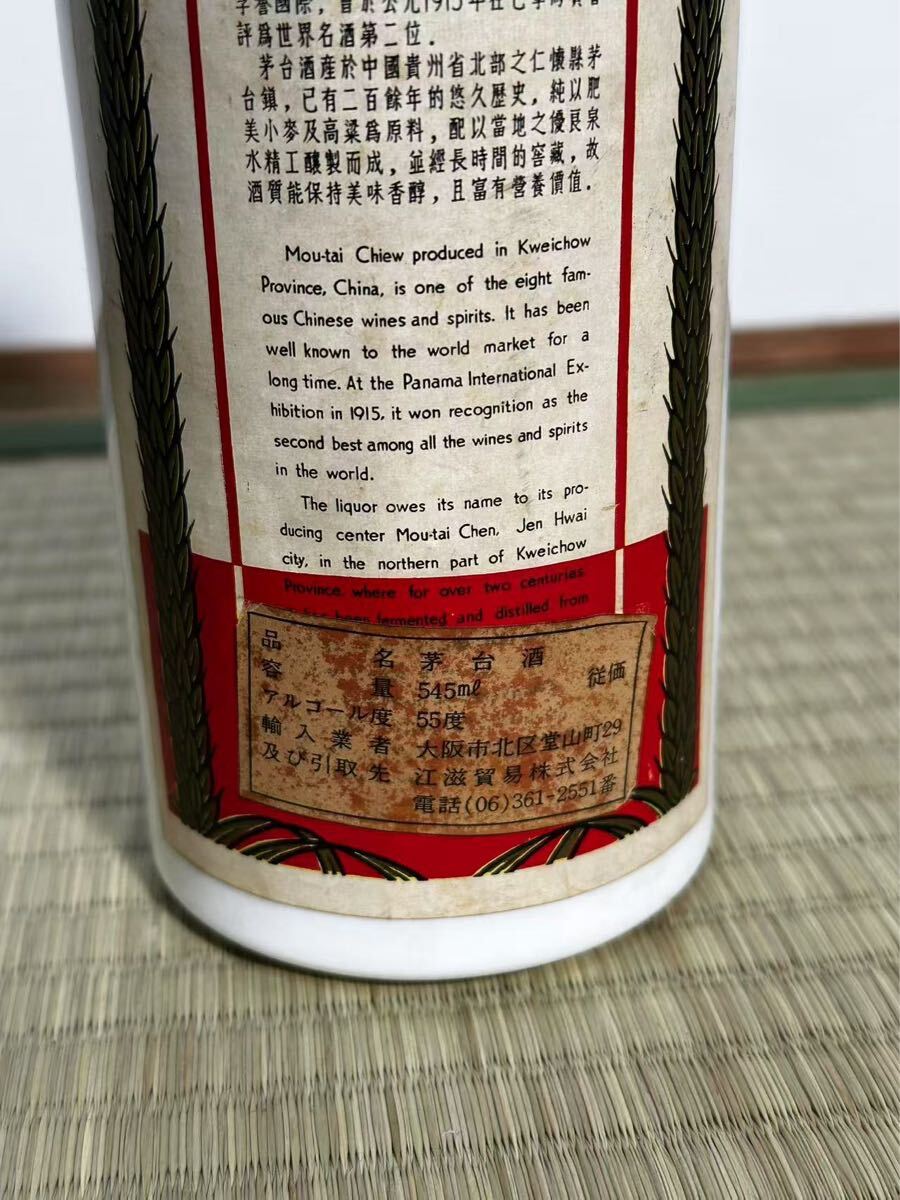 享譽國際, 曾於公元1915年在巴拿馬賽會
評爲世界名酒第二位.
茅台酒産於中國貴州省北部之仁懷縣茅
台鎮, 已有二百餘年的悠久歷史, 純以肥
美小麥及高粱爲原料, 配以當地之優良泉
水精工釀製而成, 並經長時間的窖藏, 故
酒質能保持美味香醇, 且富有营養價值.
Mou-tai Chiew produced in Kweichow
Province, China, is one of the eight fam-
ous Chinese wines and spirits. It has been
well known to the world market for a
long time. At the Panama International Ex-
hibition in 1915, it won recognition as the
second best among all the wines and spirits
in the world.
The liquor owes its name to its pro-
ducing center Mou-tai Chen, Jen Hwai
city, in the northern part of Kweichow
Province, where for over two centuries
has been fermented and distilled from
品名 茅台酒
容量 545ml 従価
アルコール度 55度
輸入業者 大阪市北区堂山町29
及び引取先 江滋貿易株式会社
電話(06)361-2551番